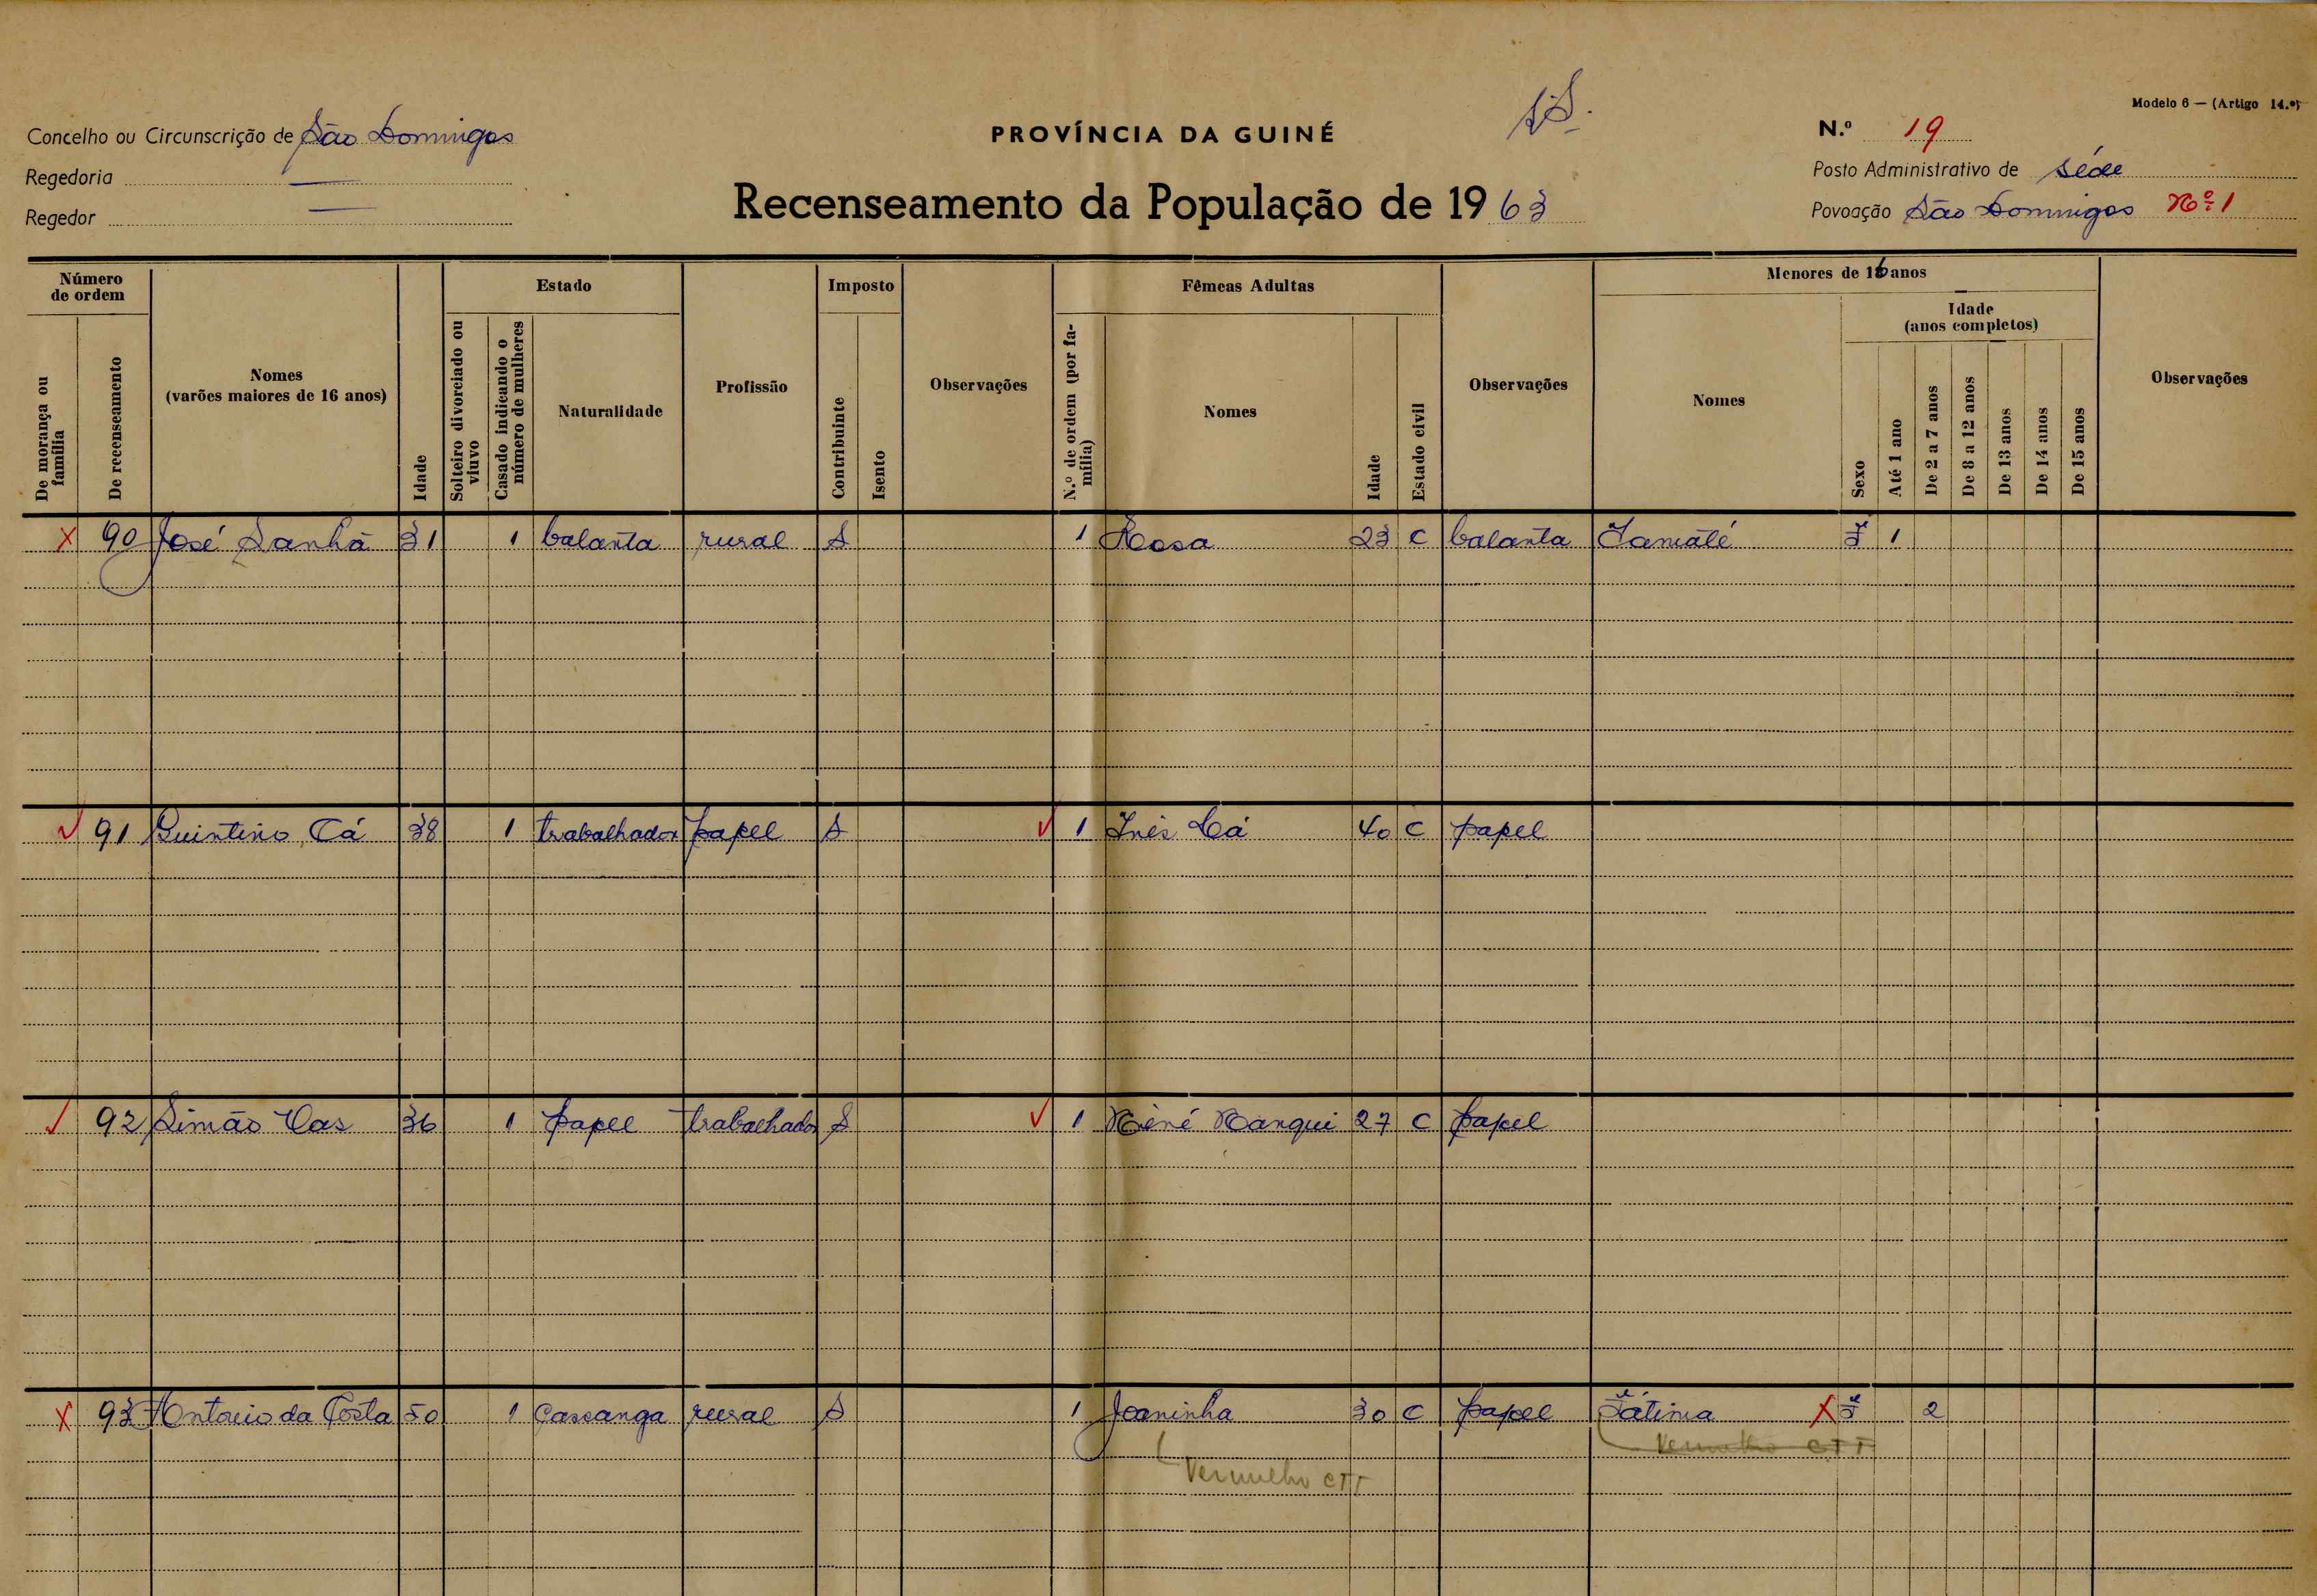 Modelo 6 — (Artigo 14.º)
Concelho ou Circunscrição de São Domingos
PROVÍNCIA DA GUINÉ
N.º 19
Regedoria —
Posto Administrativo de Séde
Regedor —
Recenseamento da População de 1963
Povoação São Domingos Nº 1
Número de ordem
Estado
Imposto
Fêmeas Adultas
Menores de 16 anos
Idade
(anos completos)
De morança ou família
De recenseamento
Nomes
(varões maiores de 16 anos)
Idade
Solteiro divorciado ou viuvo
Casado indicando o número de mulheres
Naturalidade
Profissão
Contribuinte
Isento
Observações
N.º de ordem (por família)
Nomes
Idade
Estado civil
Observações
Nomes
Sexo
Até 1 ano
De 2 a 7 anos
De 8 a 12 anos
De 13 anos
De 14 anos
De 15 anos
Observações
X 90 José Sanhá 31 1 balanta rural S 1 Rosa 23 C balanta F 1
91 Quintino Cá 38 1 trabalhador papel S 1 Inês Cá 40 C papel
92 Simão Vas 36 1 papel trabalhador S 1 Nanqui 27 C papel
X 93 Antonio da Costa 50 1 Cassanga rural S 1 Joaninha 30 C papel Fátima X F 2
Vermelho CTT
Vermelho CTT